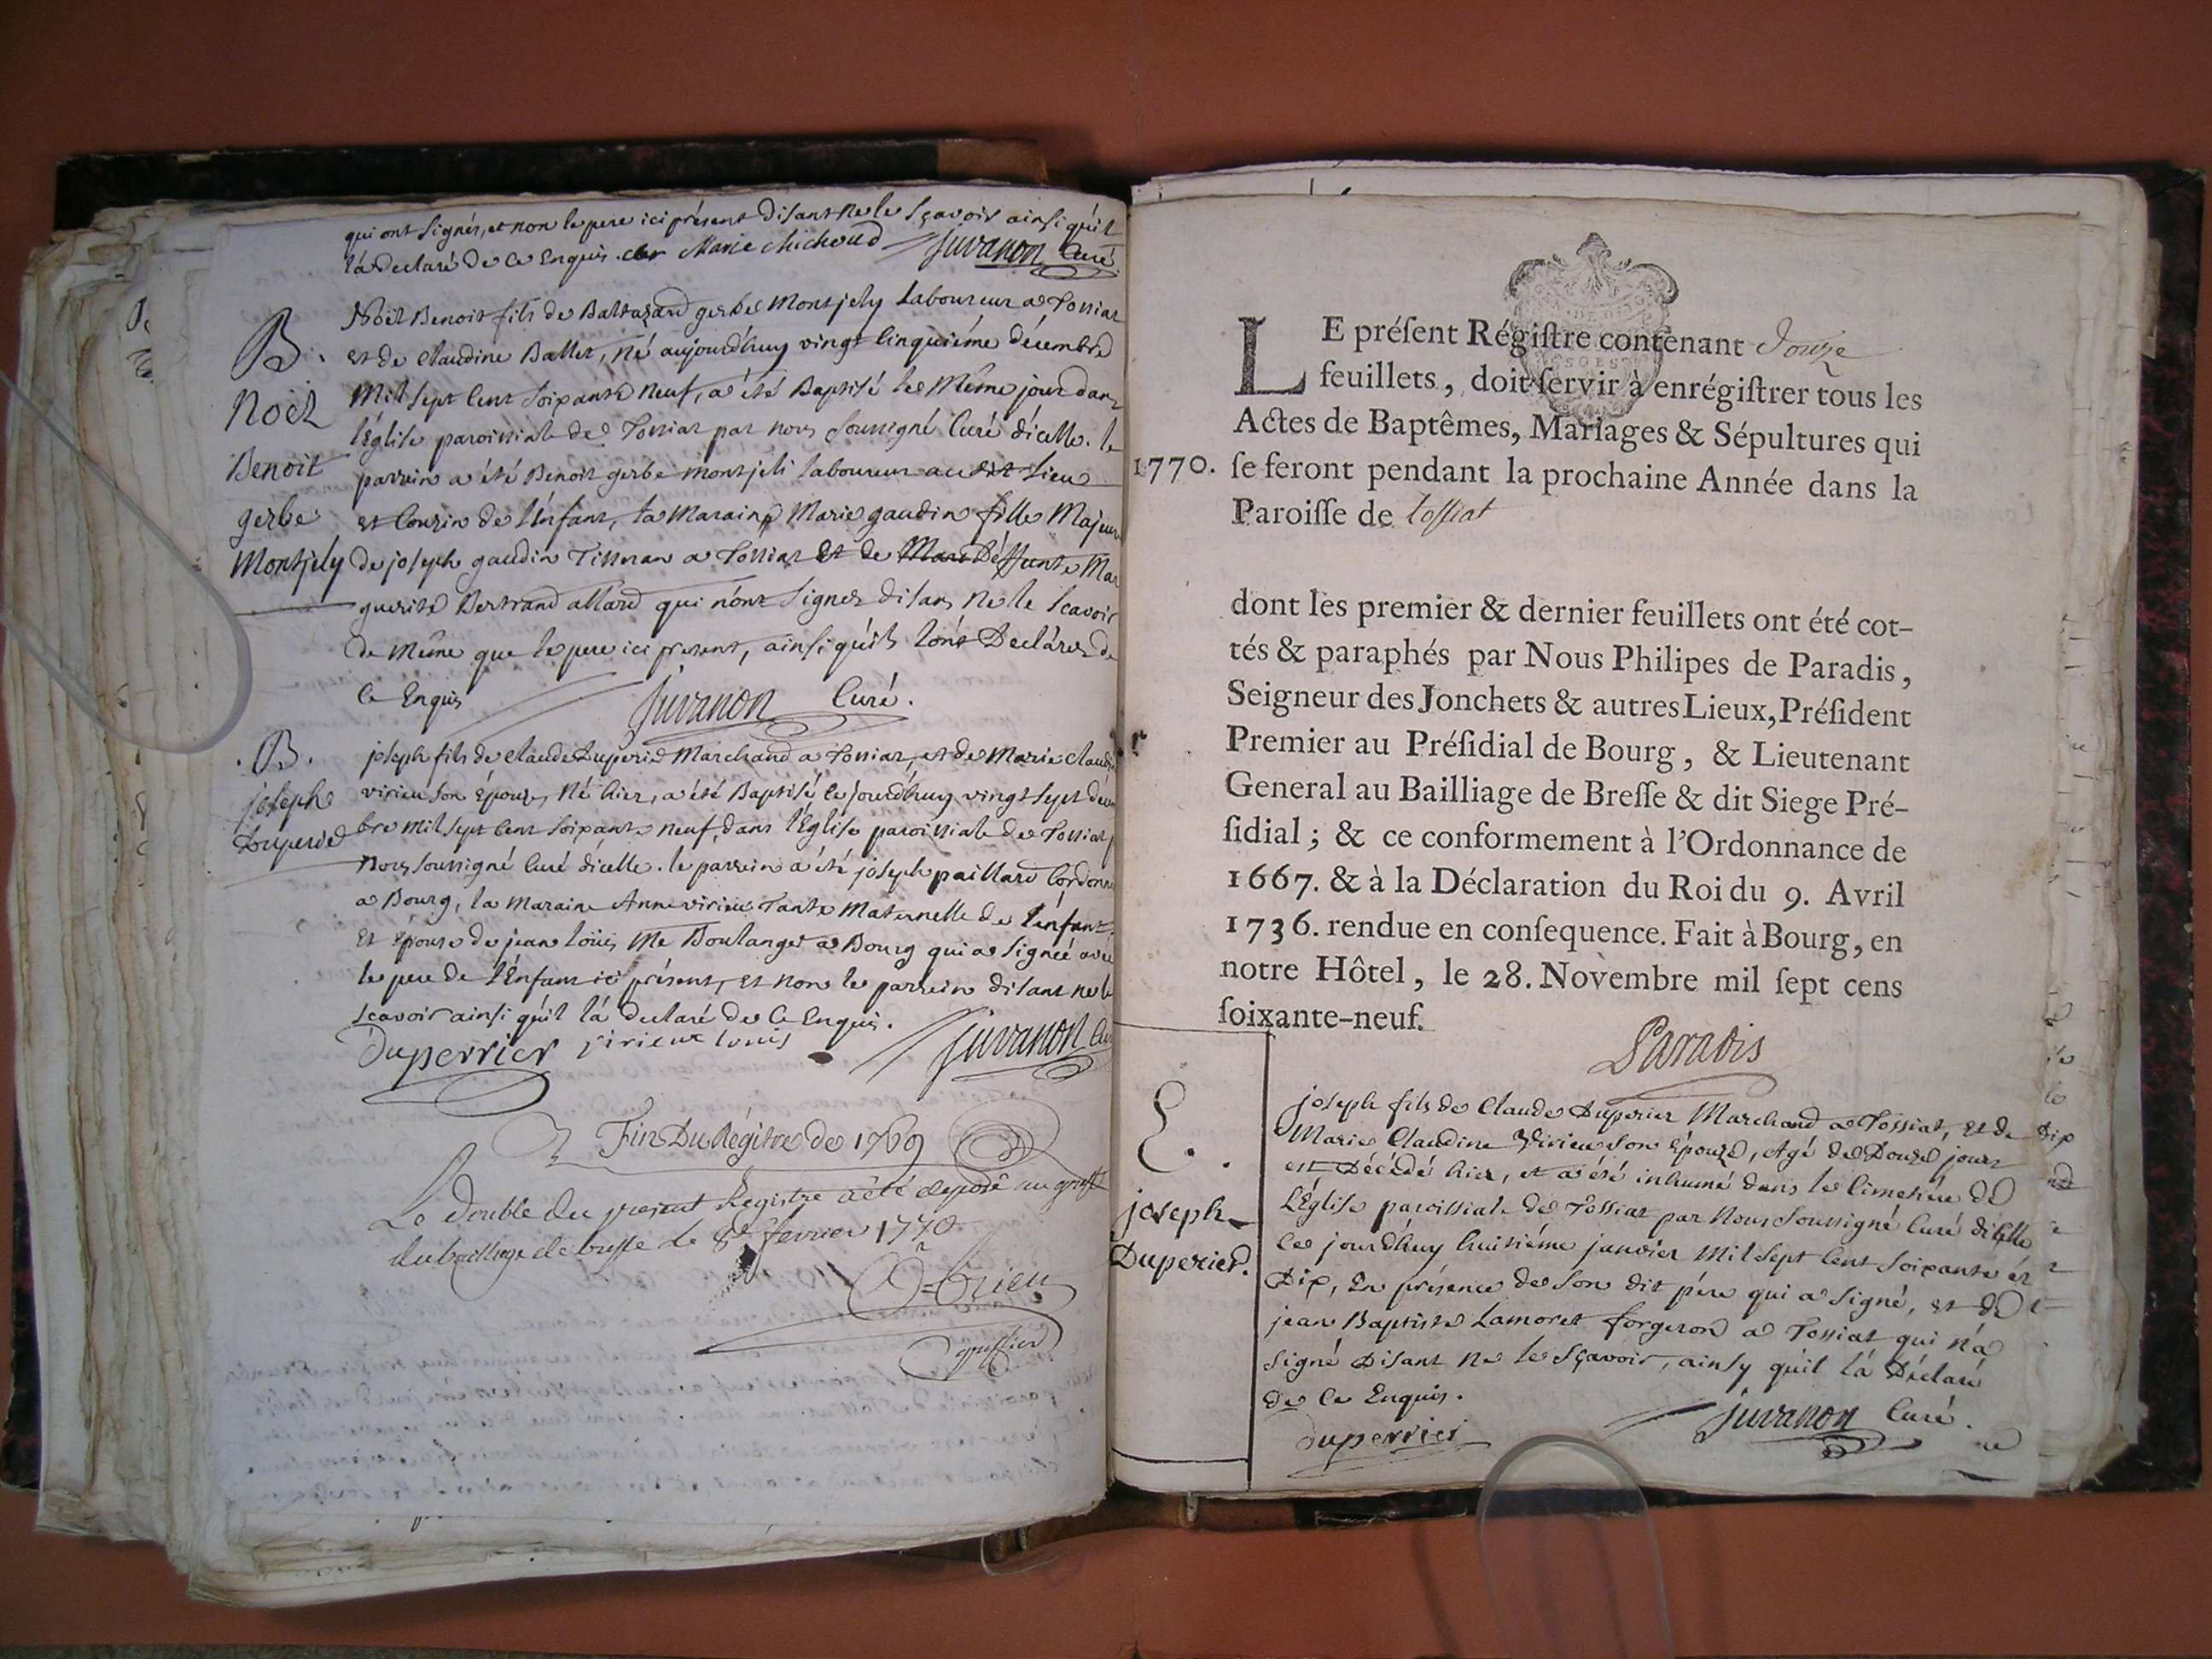 qui ont signés, et non le pere ici présent disant ne le sçavoir ainsi qu'il
l'a declaré de ce Enquis. Marie Michoud Juvanon Curé
B.
Noël
Benoit
gerbe
Montjely
Noël Benoit fils de Baltazard gerbe Montjely Laboureur a Tossiat
et de Claudine Ballet, né aujourd'huy vingt cinquiéme décembre
mil sept cent soixante neuf, a été Baptisé le même jour dans
l'Église paroissiale de Tossiat par nous soussigné Curé d'icelle. le
parrein a été Benoit gerbe montjeli laboureur au dit Lieu
et Couzin de l'Enfant, la Maraine Marie gaudin fille Majeure
de joseph gaudin Tisseran a Tossiat et de Deffunte Mar
guerite Bertrand allard qui n'ont signer disans ne le scavoir
de même que le pere ici present, ainsi qu'ils l'ont Declárer de
ce Enquis Juvanon Curé.
.B.
joseph
Duperié
joseph fils de claude Duperié Marchand a Tossiat, et de Marie Claudi
virieu son épouze, né hier, a été Baptisé ce jourd'huy vingt sept decem
bre mil sept cent soixante neuf, dans l'Église paroissiale de Tossiat p
nous soussigné Curé d'icelle. le parrein a été joseph paillard Cordonn
a Bourg, la maraine Anne virieu Tante maternelle de l'enfant
et épouse de jean loüis Me Boulanger a Bourg qui a signeé avec
le pere de l'Enfant ici présent, et non le parrein disant ne le
scavoir ainsi qu'il l'a declaré de Ce Enquis.
Duperrier virieux louis Juvanon Cu
Fin Du Régitre de 1769
Le double du present Registre a été deposé au greffe
du bailliage de bresse le 8e fevrier 1770.
greffier
LE préſent Régiſtre contenant Douze
feuillets, doit ſervir à enrégiſtrer tous les
Actes de Baptêmes, Mariages & Sépultures qui
1770. ſe feront pendant la prochaine Année dans la
Paroiſſe de toſſiat
dont les premier & dernier feuillets ont été cot-
tés & paraphés par Nous Philipes de Paradis,
Seigneur des Jonchets & autres Lieux, Préſident
Premier au Préſidial de Bourg, & Lieutenant
General au Bailliage de Breſſe & dit Siege Pré-
ſidial; & ce conformement à l'Ordonnance de
1667. & à la Déclaration du Roi du 9. Avril
1736. rendue en conſequence. Fait à Bourg, en
notre Hôtel, le 28. Novembre mil ſept cens
ſoixante-neuf.
Paradis
E.
joseph
Duperier.
joseph fils de Claude Duperier Marchand a Tossiat, et de
Marie Claudine Virieu son épouze, Agé de Douze jours
est Décédé hier, et a été inhumé dans le Cimetiére de
l'Église paroissiale de Tossiat par Nous soussigné Curé d'icelle
ce jourd'huy huitiéme janvier Mil sept cent soixante et
Dix, En présence de son dit pére qui a signé, et de
jean Baptiste Lamoret forgeron a Tossiat qui n'a
signé Disant ne le Sçavoir, ainsy qu'il l'a Déclaré
de ce Enquis.
Duperrier Juvanon Curé.